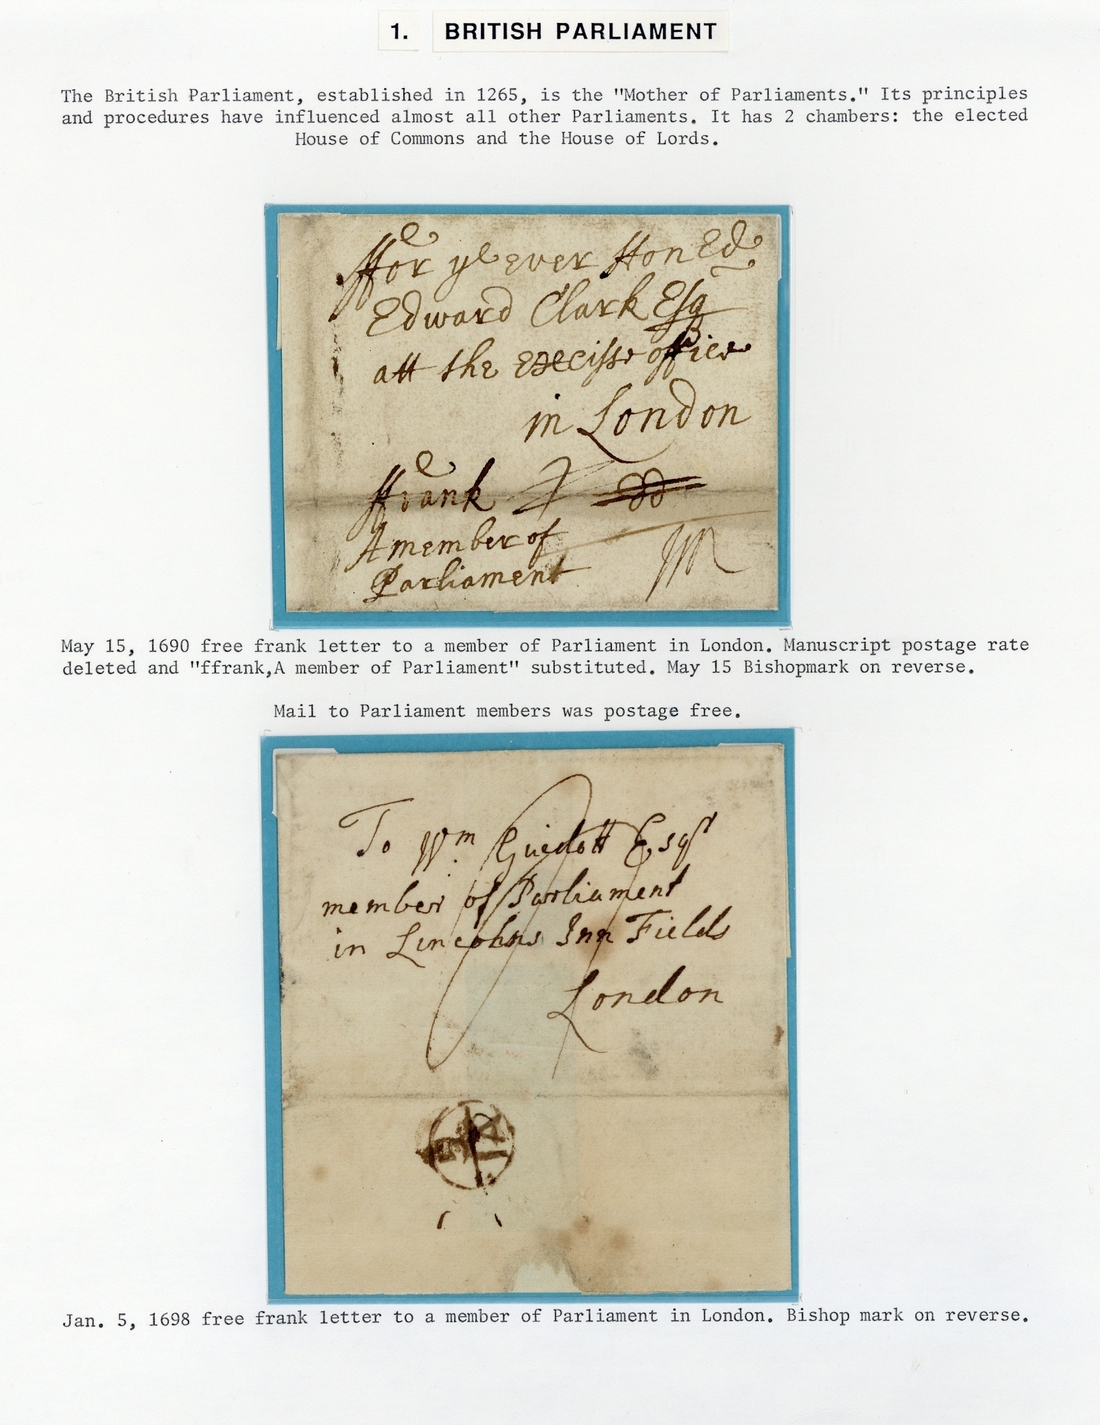 1. BRITISH PARLIAMENT
The British Parliament, established in 1265, is the "Mother of Parliaments." Its principles
and procedures have influenced almost all other Parliaments. It has 2 chambers: the elected
House of Commons and the House of Lords.
ffor ye ever Honed
Edward Clark Esq
att the office
in London
ffrank
A member of
Parliament
May 15, 1690 free frank letter to a member of Parliament in London. Manuscript postage rate
deleted and "ffrank,A member of Parliament" substituted. May 15 Bishopmark on reverse.
Mail to Parliament members was postage free.
To Wm Guidott Esqr
member of Parliament
in Lincolns Inn Fields
London
Jan. 5, 1698 free frank letter to a member of Parliament in London. Bishop mark on reverse.